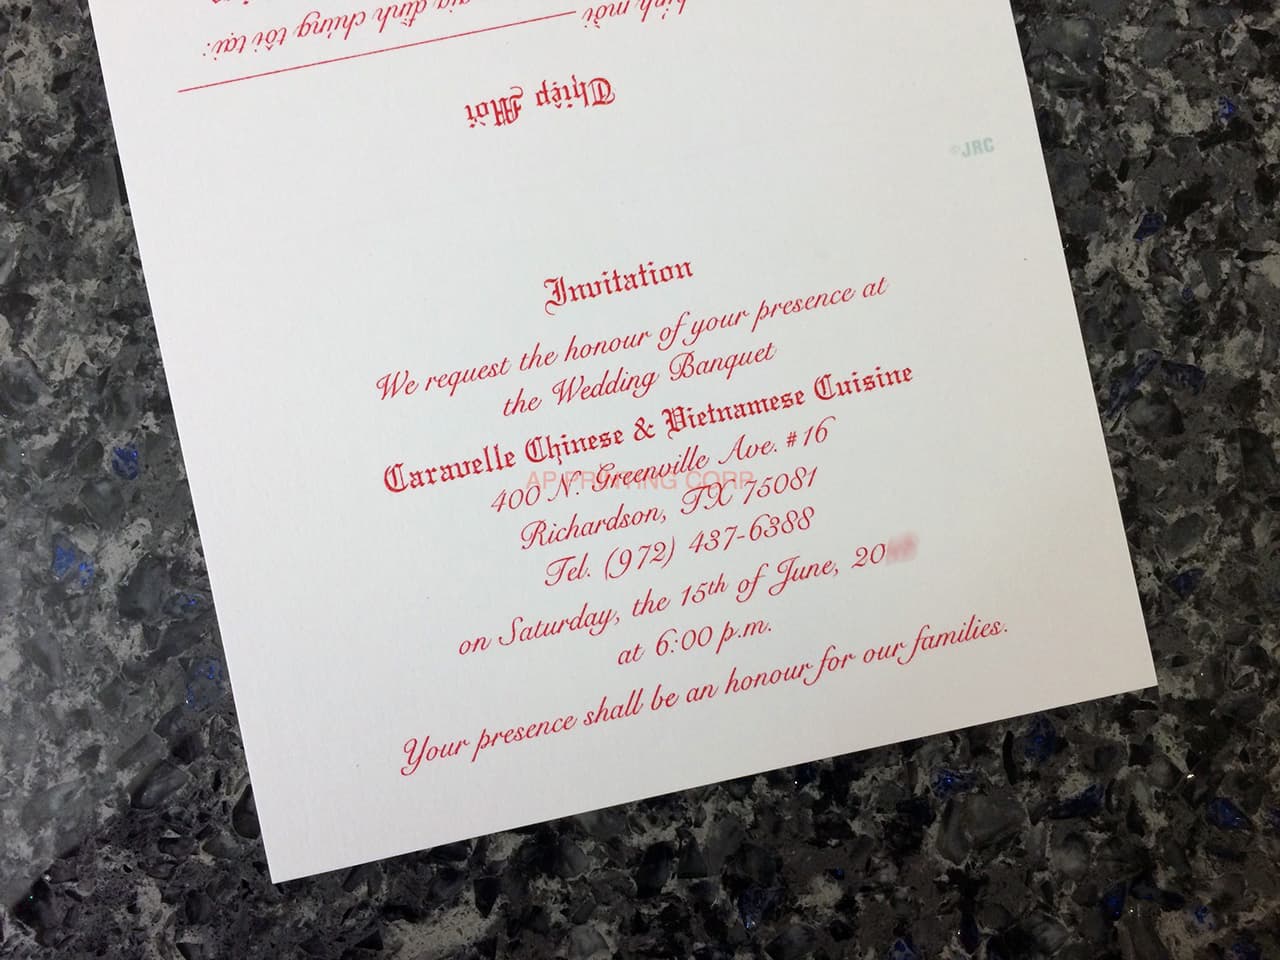 Thiệp Mời
kính mời
gia đình chúng tôi tại:
©JRC
Invitation
We request the honour of your presence at
the Wedding Banquet
Caravelle Chinese & Vietnamese Cuisine
400 N. Greenville Ave. #16
AP PRINTING CORP
Richardson, TX 75081
Tel. (972) 437-6388
on Saturday, the 15th of June, 20
at 6:00 p.m.
Your presence shall be an honour for our families.